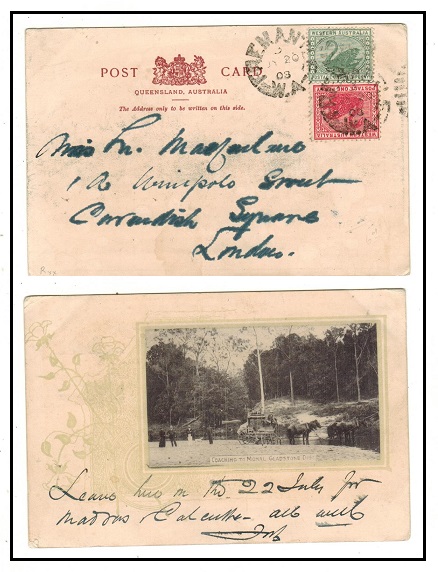 POST CARD
QUEENSLAND, AUSTRALIA
The Address only to be written on this side.
WESTERN AUSTRALIA
FREMANT
20
03
W.A
Miss M. Macfarlane
1 A Street
Cavendish Square
London.
COACHING TO MOPHL, GLADSTONE
Leave here on the 22 July for
Madras Calcutta - all well